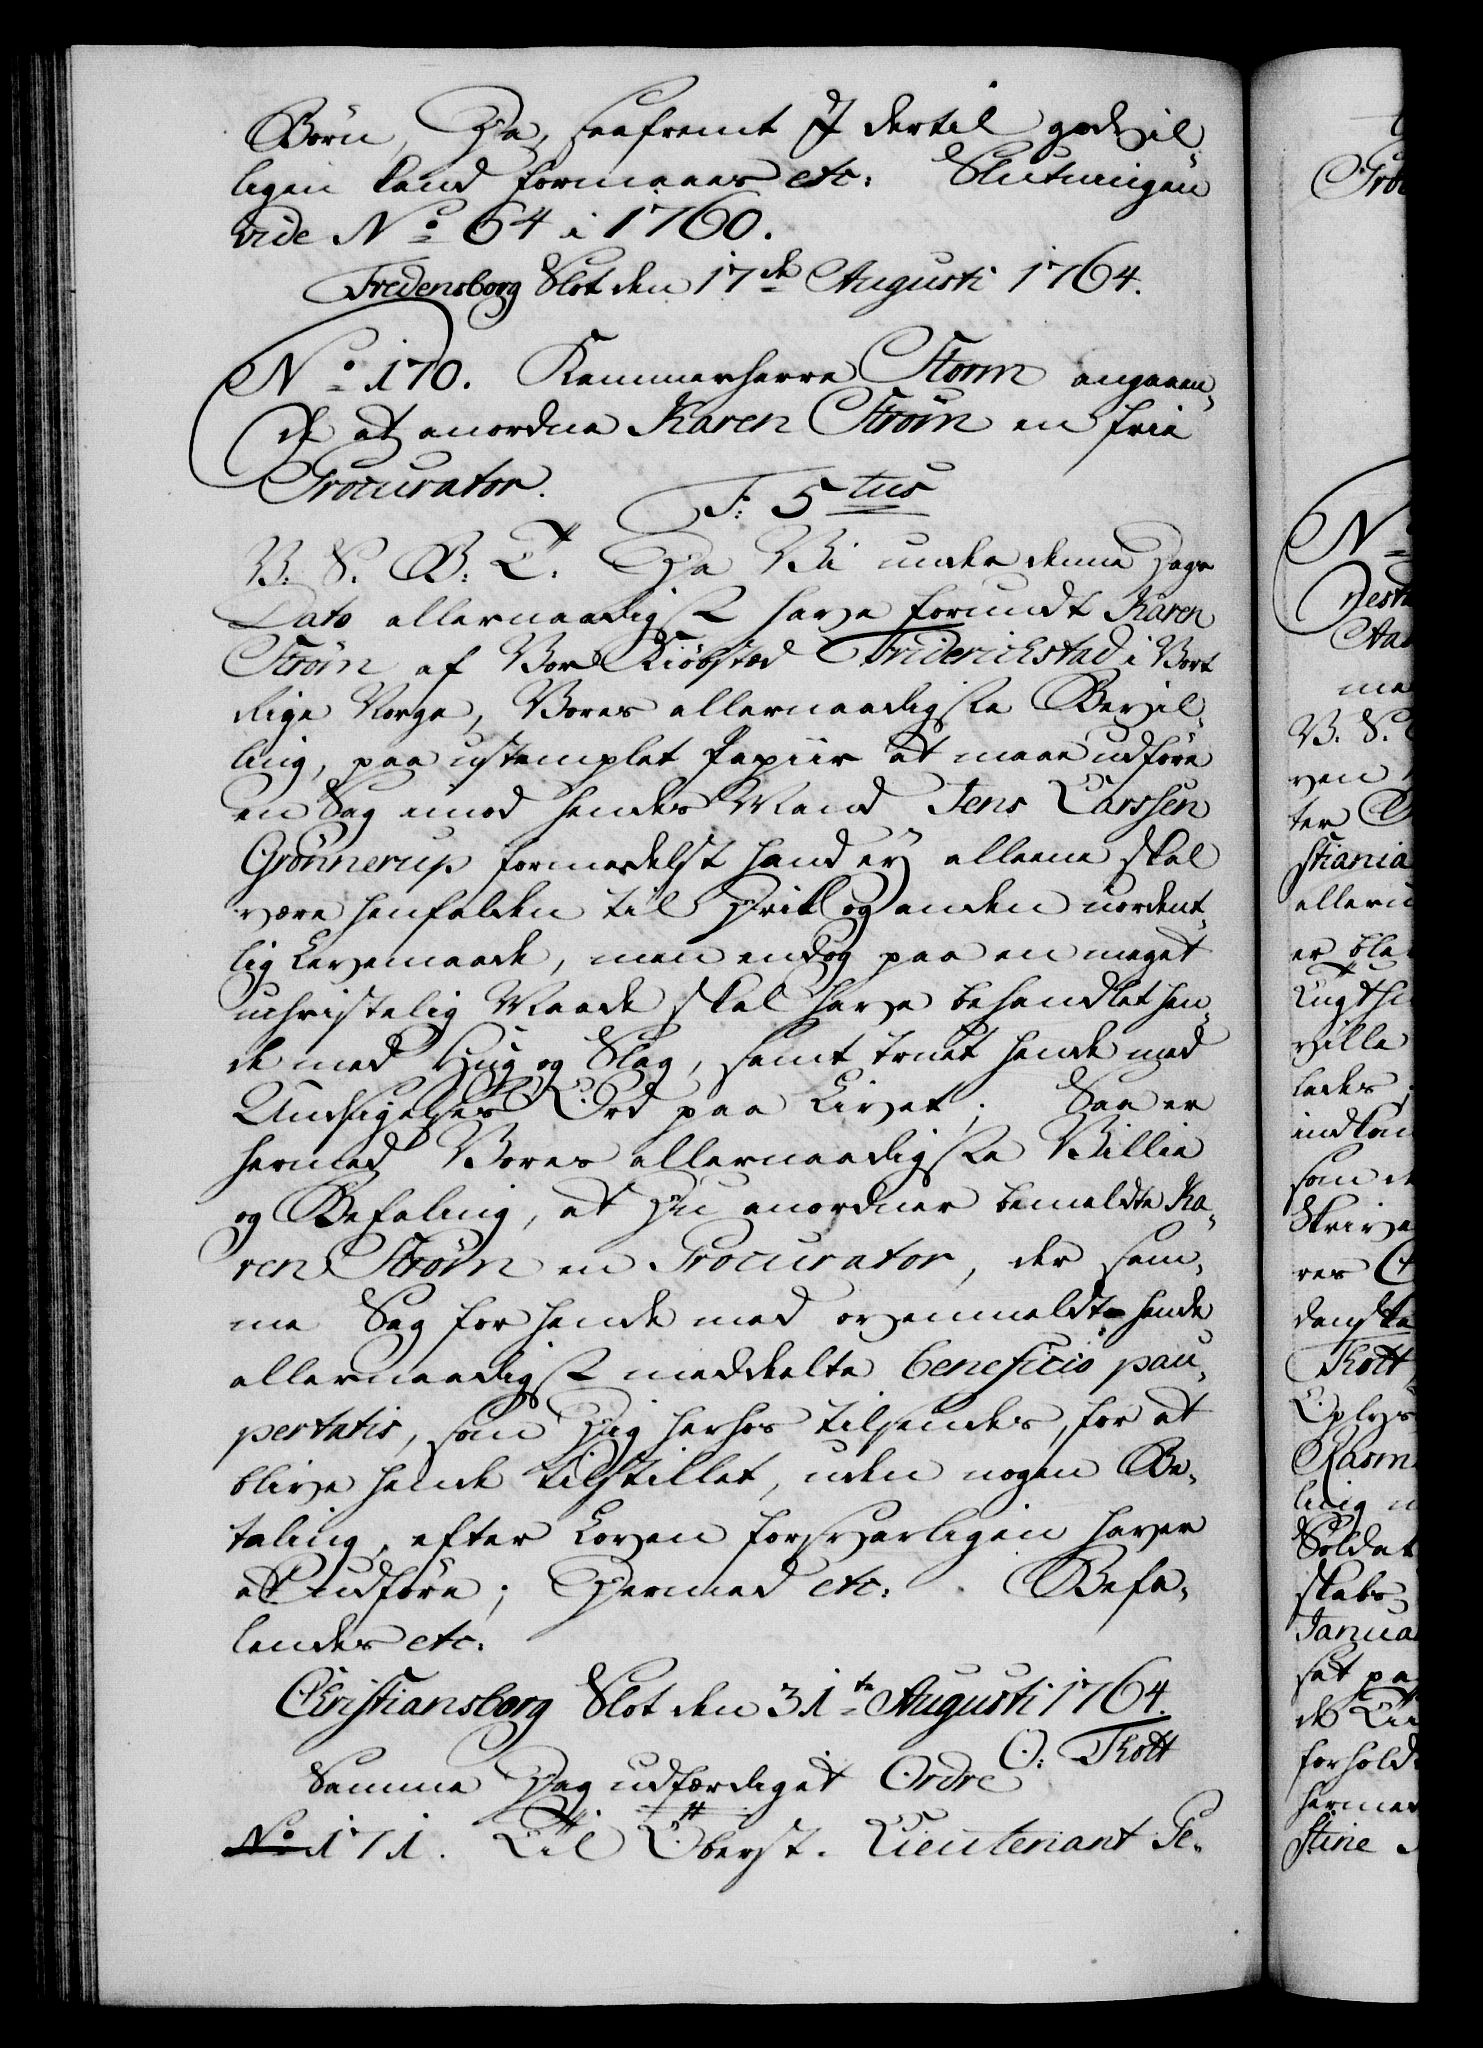 Børn, Da, saafremt I dertil godvil
ligen kand formaaes etc: Slutningen
vide No 64 i 1760.
Fredensborg Slot den 17de Augusti 1764.
No 170. Kammerherre Storm angaaen,
de at anordne Karen Strøm en frie
Procurator.
F: 5tus
V. S. G. T. Da Vi under denne Dags
Dato allernaadigst have forundt Karen
Strøm af Vor Kiøbstæd Friderichstad i Vort
Rige Norge, Vores allernaadigste Bevil,
ling, paa ustemplet Papiir at maae udføre
en Sag imod hendes Mand Jens Larssen
Grønnerup formedelst hand ey alleene skal
være henfalden til Drik og anden uordent,
lig Levemaade, men endog paa en meget
uchristelig Maade skal have behandlet hen,
de med Hug og Slag, samt truet hende med
Undsigelses Ord paa Livet; Saa er
hermed Vores allernaadigste Villie
og Befaling, at Du anordner bemeldte Ka,
ren Strøm en Procurator, der sam,
me Sag for hende med ovenmeldte hende
allernaadigst meddeelte beneficio pau,
pertatis, som Dig herhos tilsendes, for at
blive hende tilstillet, uden nogen Be,
taling, efter Loven forsvarligen haver
at udføre; Dermed etc: Befa,
lendes etc.
Christiansborg Slot den 31te Augusti 1764.
O: Thott
Samme Dag udfærdiget Ordre
No 171. Til Oberst-Lieutenant Pe,